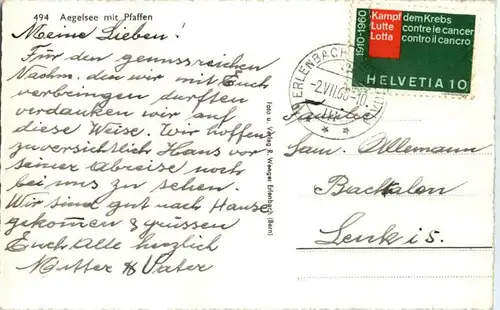 494 Aegelsee mit Pfaffen
Meine Lieben!
Für den genussreichen
Nachm. den wir mit Euch
verbringen durften
verdanken wir auf
diese Weise. Wir hoffen
zuversichtlich Hans vor
seiner Abreise noch
bei uns zu sehen.
Wir sind gut nach Hause
gekommen & grüssen
Euch Alle herzlich
Mutter & Vater
Foto u. Verlag R. Weeger Erlenbach (Bern)
ERLENBACH
-2.VII.60-10
1910-1960
Kampf dem Krebs
Lutte contre le cancer
Lotta contro il cancro
HELVETIA 10
Familie
Sam. Allemann
Bachtalen
Lenk i S.